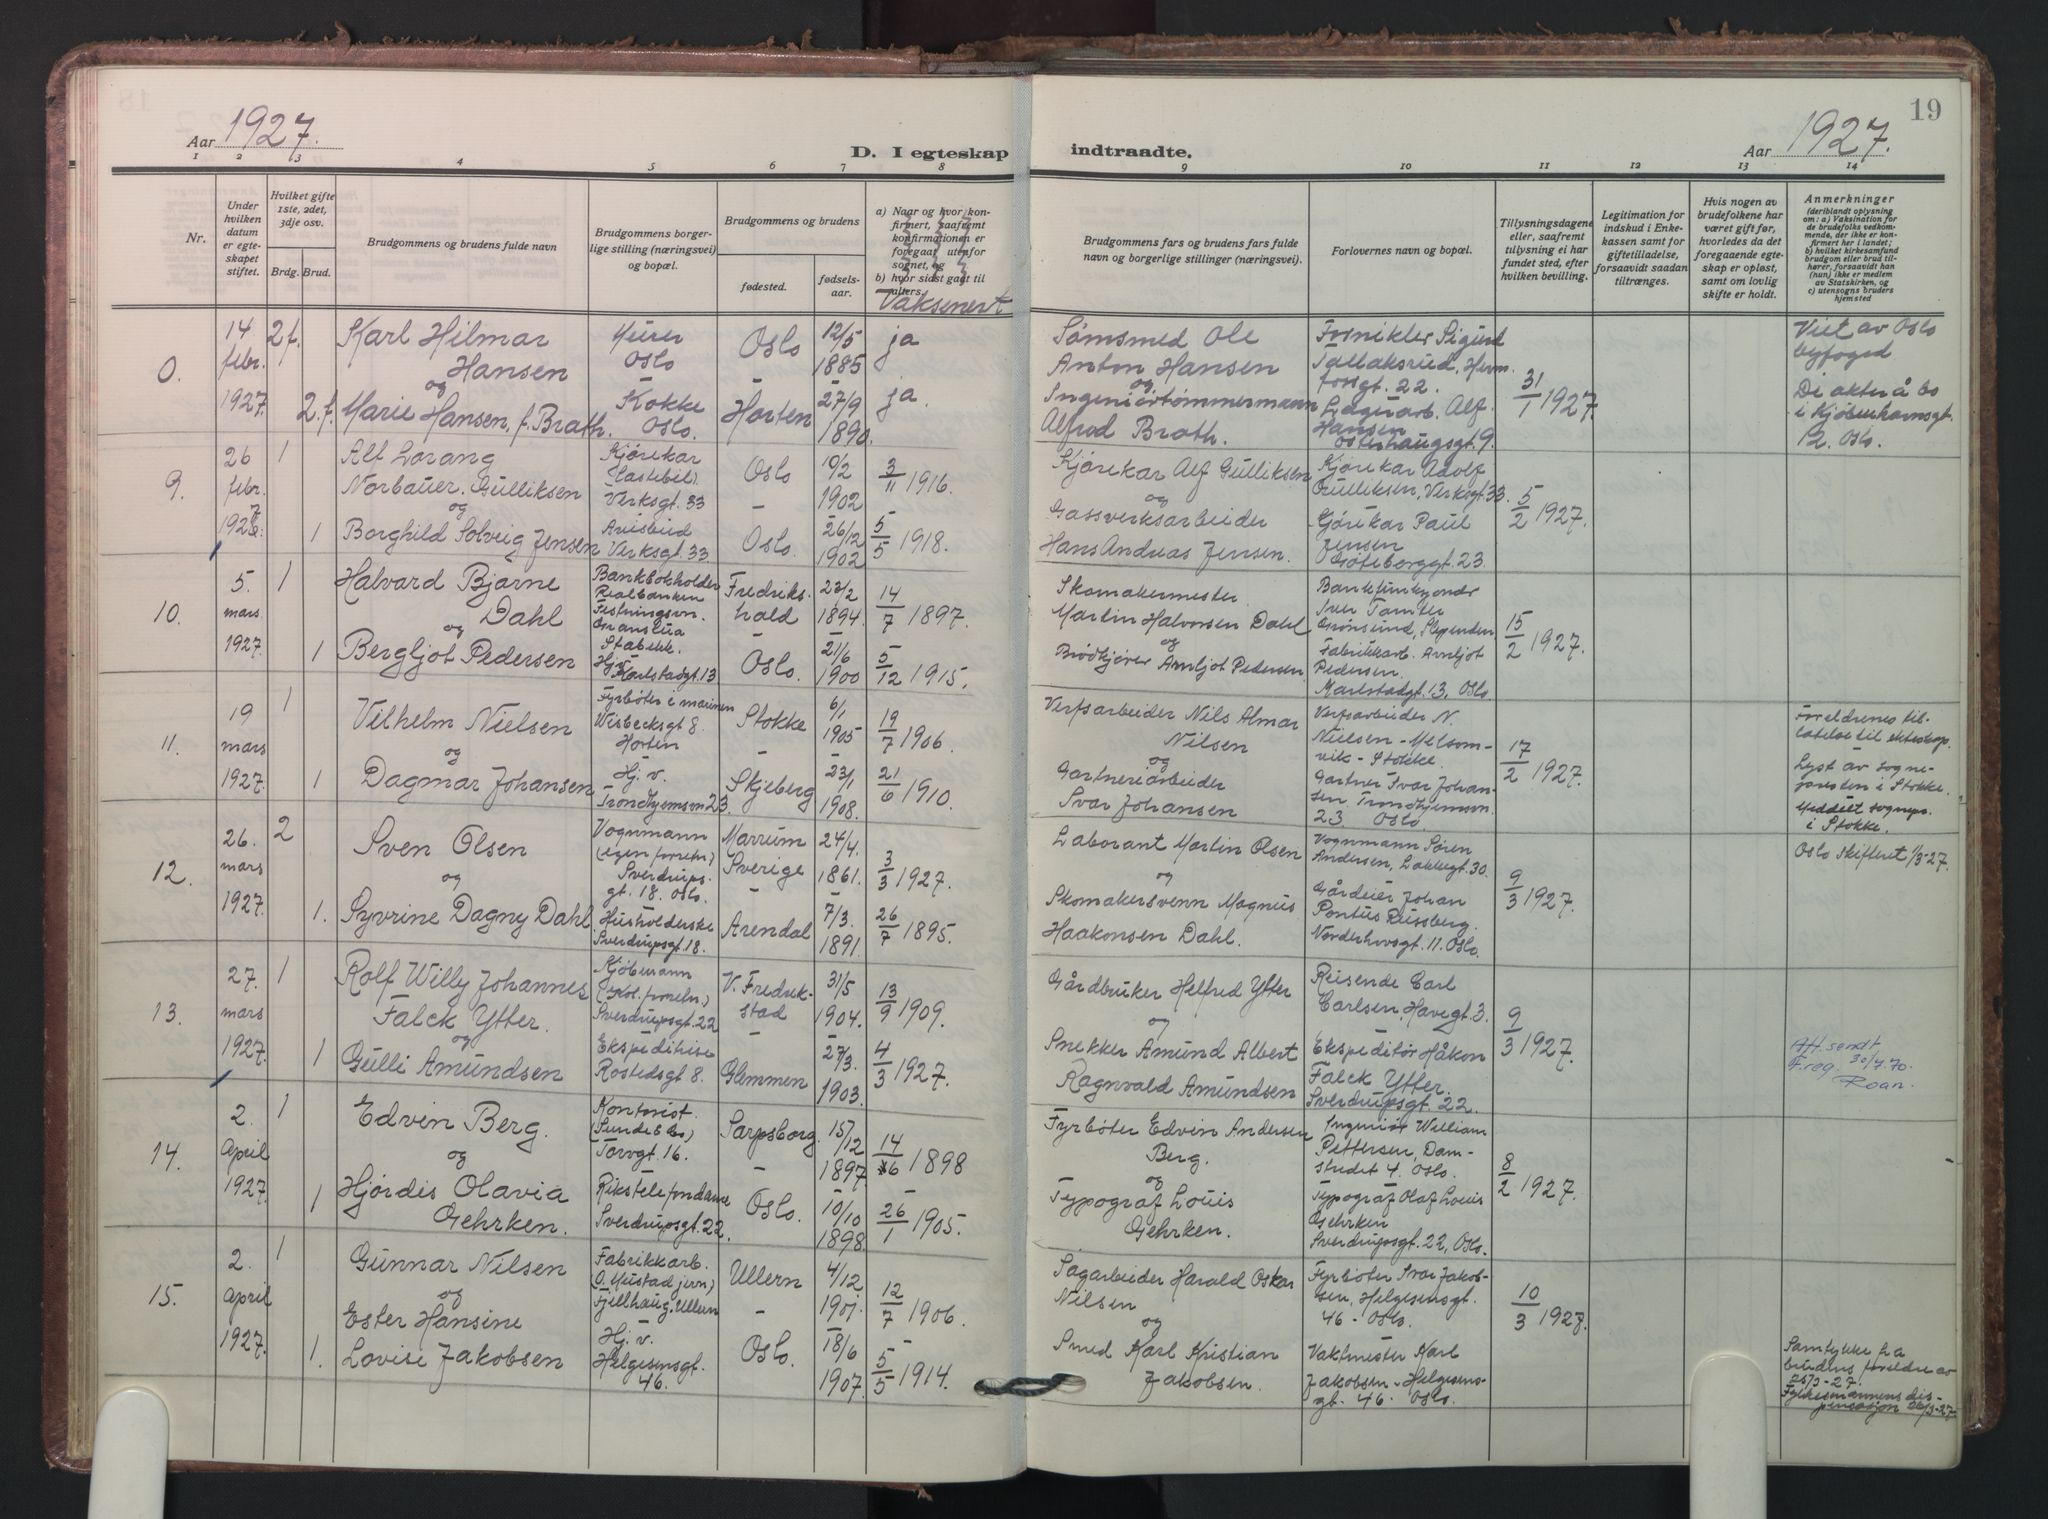 Aar 1927.
D. I egteskap
indtraadte.
Aar 1927.
19
1 2 3 4 5 6 7 8 9 10 11 12 13 14
Nr.
Under hvilken datum er egteskapet stiftet.
Hvilket gifte 1ste, 2det, 3dje osv.
Brdg. Brud.
Brudgommens og brudens fulde navn
Brudgommens borgerlige stilling (næringsvei) og bopæl.
Brudgommens og brudens
fødested.
fødselsaar.
a) Naar og hvor konfirmert, saafremt konfirmationen er foregaat utenfor sognet, og
b) hvor sidst gaat til alters.
Vaksinert
Brudgommens fars og brudens fars fulde navn og borgerlige stillinger (næringsvei).
Forlovernes navn og bopæl.
Tillysningsdagene eller, saafremt tillysning ei har fundet sted, efter hvilken bevilling.
Legitimation for indskud i Enkekassen samt for giftetilladelse, forsaavidt saadan tiltrænges.
Hvis nogen av brudefolkene har været gift før, hvorledes da det foregaaende egteskap er opløst, samt om lovlig skifte er holdt.
Anmerkninger
(deriblandt oplysning om: a) Vaksination for de brudefolks vedkommende, der ikke er konfirmert her i landet; b) hvilket kirkesamfund brudgom eller brud tilhører, forsaavidt han (hun) ikke er medlem av Statskirken, og c) utensogns bruders hjemsted
0. 14 febr. 1927. 2f. Karl Hilmar Hansen Murer Oslo Oslo 12/5 1885 ja
og
2.f. Marie Hansen, f. Brath. Kokke Oslo. Horten 27/9 1890. ja.
Sømsmed Ole Anton Hansen
og
Ingeniørtømmermann Alfred Brath.
Sigurd Tallaksrud, 22.
Lagerarb. Alf Hansen Østerhaugsgt. 9.
31/1 1927.
Viet av Oslo byfoged
De akter å bo i Kjøbenhavnsgt. 12. Oslo.
9. 26 febr. 1927 1 Alf Lorang Norbauer. Gulliksen Kjørekar (Lastebil) Verksgt. 33 Oslo 10/2 1902 3/11 1916.
og
1 Borghild Solveig Jensen Avisbud Verksgt. 33 Oslo. 26/12 1902 5/5 1918.
Kjørekar Alf Gulliksen
og
Gassverksarbeider Hans Andreas Jensen.
Kjørekar Adolf Gulliksen, Verksgt. 33.
Kjørekar Paul Jensen Gøteborggt. 23.
5/2 1927.
10. 5. mars 1927. 1 Halvard Bjarne Dahl Bankbokholder Realbanken Festningsvn. Granslua Stabekk. Fredrikshald 23/2 1894. 14/7 1897.
og
1 Bergljot Pedersen Hj.v. Karlstadgt. 13 Oslo. 21/6 1900 5/12 1915.
Skomakermester Martin Halvorsen Dahl
og
Brødkjører Arnljot Pedersen
Bankfunksjonær Iver Tamter Grønsund, Slependen
Fabrikkarb. Arnljot Pedersen. Karlstadgt. 13. Oslo
15/2 1927.
11. 19 mars 1927. 1 Vilhelm Nielsen Fyrbøter i marinen Wisbecksgt 8. Horten Stokke 6/1 1905 19/7 1906.
og
1 Dagmar Johansen Hj. v. Trondhjemsvn 23. Skjeberg 23/1 1908. 21/6 1910.
Verfsarbeider Nils Almar Nilsen
og
Gartneriarbeider Ivar Johansen
Verfsarbeider N. Nielsen - Melsomvik - Stokke.
Gartner Ivar Johansen. Trondhjemsvn. 23 Oslo.
17/2 1927.
Foreldrenes tillatelse til ekteskap.
Lyst av sognepresten i Stokke.
Meddelt sognepr. i Stokke.
12. 26. mars 1927. 2 Sven Olsen Vognmann (egen forretn.) Sverdrupsgt. 18. Oslo. Marrum Sverige 24/4. 1861. 3/3 1927.
og
1. Syvrine Dagny Dahl. Husholderske Sverdrupsgt. 18. Arendal 7/3. 1891. 26/7 1895.
Laborant Martin Olsen
og
Skomakersvenn Magnus Haakonsen Dahl.
Vognmann Søren Andersen, Lakkegt. 30.
Gårdeier Johan Pontus Russberg. Norderhovsgt. 11. Oslo.
9/3 1927.
Oslo skifterett 1/3-27.
13. 27. mars 1927. 1 Rolf Willy Johannes Falck Ytter. Kjøbmann Sverdrupsgt. 22 V. Fredrikstad 31/5 1904. 13/9 1909.
og
1 Gulli Amundsen Ekspeditrise Rostedsgt 8. Glemmen 27/3. 1903. 4/3 1927.
Gårdbruker Helfred Ytter
og
Snekker Amund Albert Ragnvald Amundsen
Reisende Carl Carlsen, Havegt. 3.
Ekspeditør Håkon Falck Ytter. Sverdrupsgt. 22.
9/3 1927.
Att. sendt F.reg. 30/7.70. Roan.
14. 2. April 1927. 1 Edvin Berg. Kontorist. Torvgt. 16. Sarpsborg. 15/12 1897. 14/6 1898
og
1 Hjørdis Olavia Gehrken. Rikstelefondame Sverdrupsgt. 22. Oslo. 10/10 1898. 26/1 1905.
Fyrbøter Edvin Andersen Berg.
og
Typograf Louis Gehrken.
Ingeniør William Pettersen, Damstredet 4. Oslo.
Typograf Olaf Louis Gehrken Sverdrupsgt. 22, Oslo.
8/2 1927.
15. 2. April 1927. 1 Gunnar Nilsen Fabrikkarb. (O. Mustad jern) Fjellhaug, Ullern Ullern 4/12 1901. 12/7 1906.
og
1. Ester Hansine Lovise Jakobsen Hj. v. Helgesensgt. 46. Oslo. 18/6 1907. 5/5 1914.
Sagarbeider Harald Oskar Nilsen
og
Smed Karl Kristian Jakobsen.
Fyrbøter Ivar Jakobsen, Helgesensgt. 46 - Oslo.
Vaktmester Karl Jakobsen - Helgesensgt. 46. Oslo.
10/3 1927.
Samtykke fra brudens foreldre av 25/3-27.
Fylkesmannens dispensasjon 26/3-27.